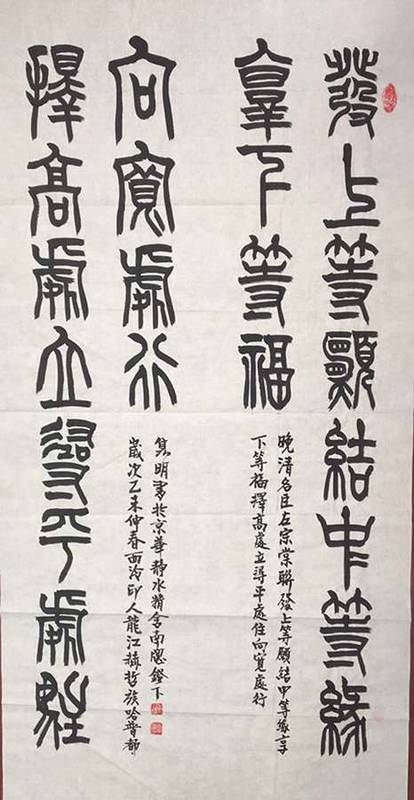 發上等願結中等緣
享下等福
晚清名臣左宗棠聯發上等願結中等緣享
下等福擇高處立尋平處住向寬處行
擇高處立尋平處住
向寬處行
歲次乙未仲春西泠印人龍江赫哲族哈普都
雋明書於京華靜水精舍南窗鐙下